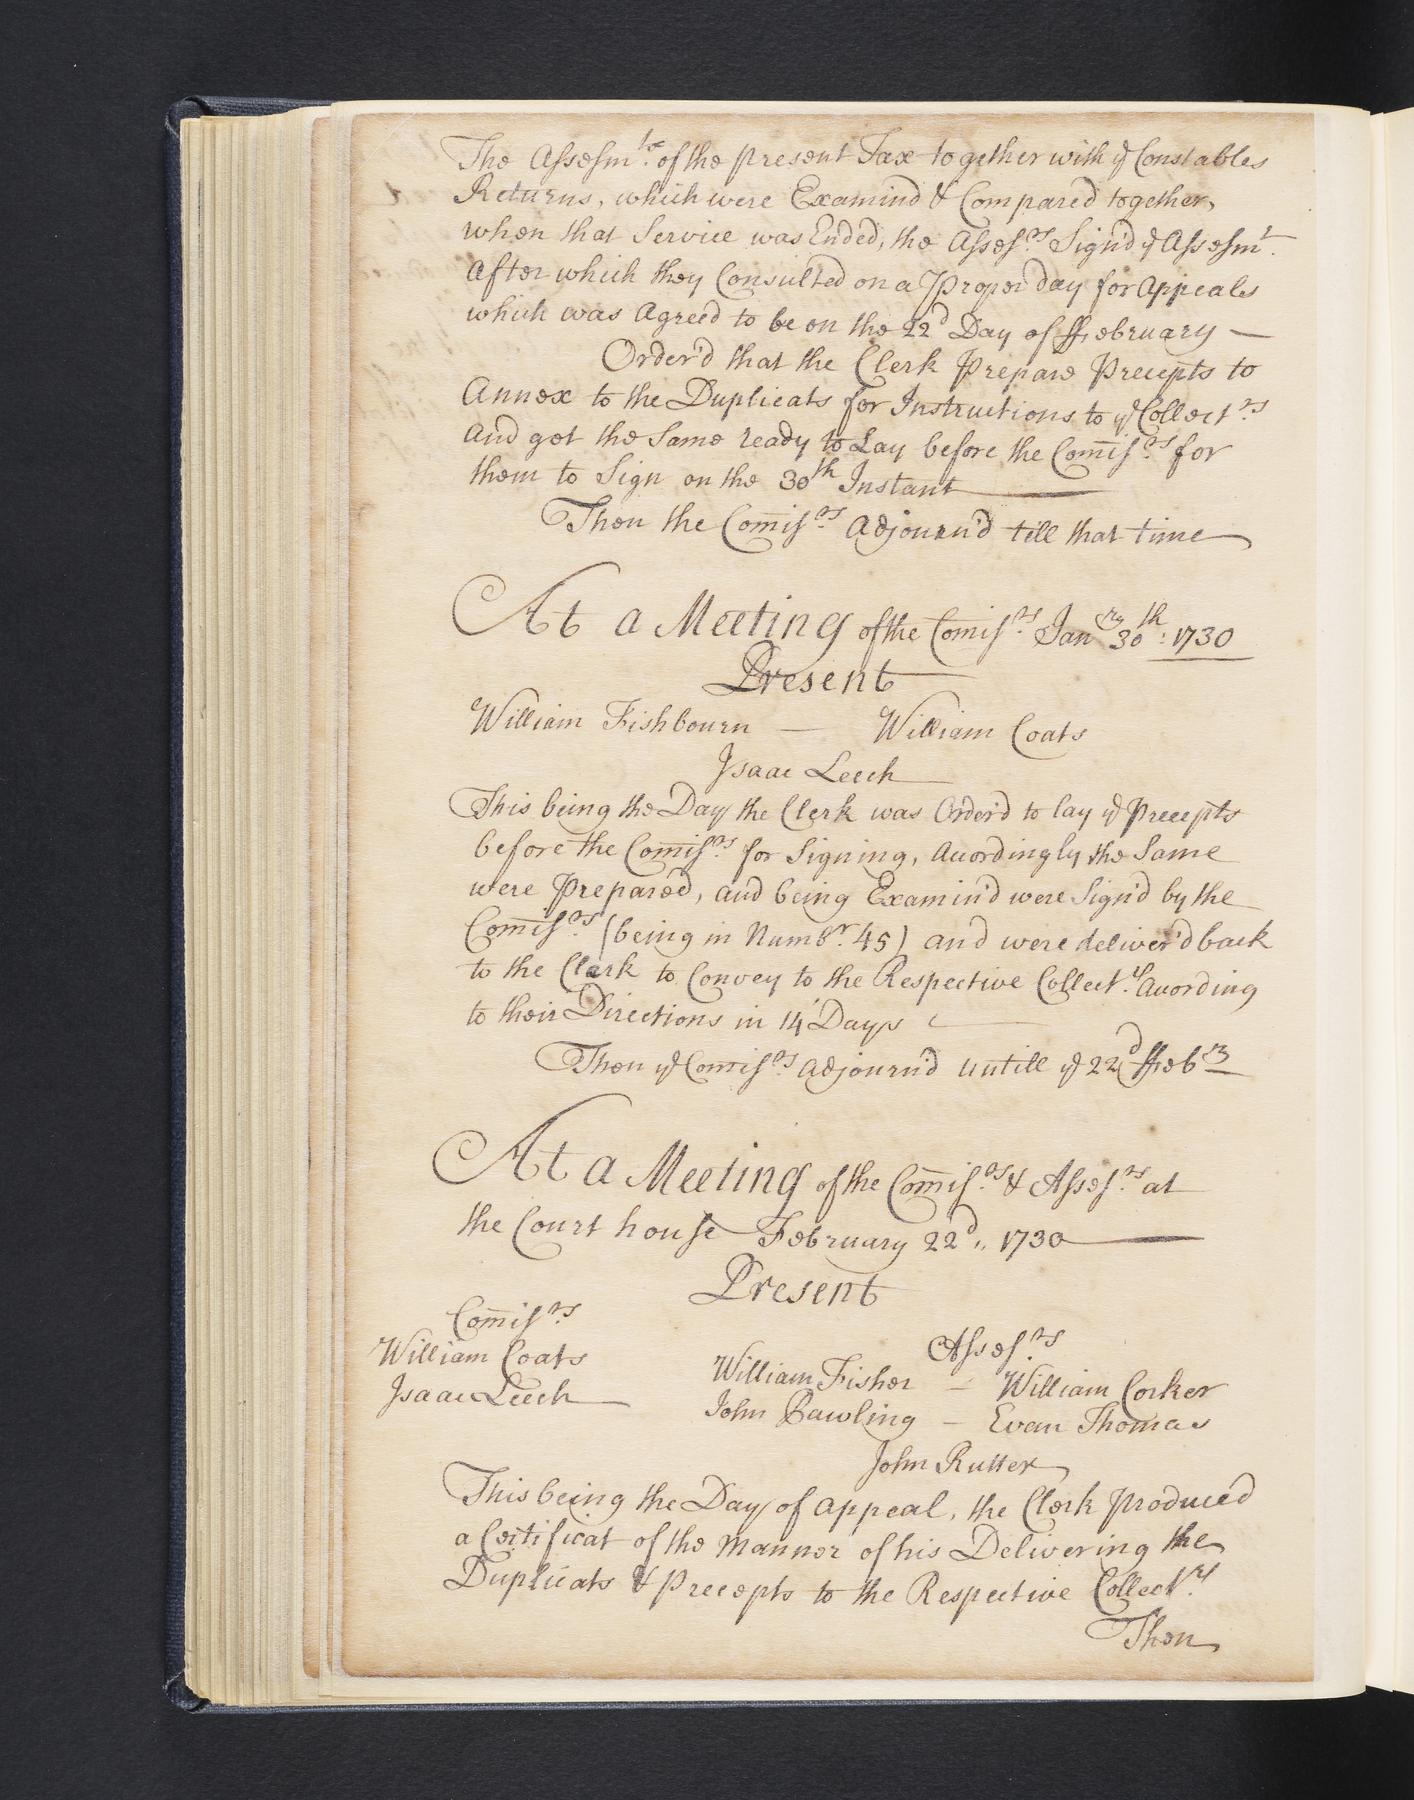 The Assesm.ts of the present Tax together with ye Constables
Returns, which were Examind & Compared together,
when that Service was Ended, the Asses.rs Sign'd ye Assesm.t
After which they Consulted on a Proper day for Appeals
which was Agreed to be on the 22d Day of ffebruary —
Order'd that the Clerk Prepare Precepts to
Annex to the Duplicats for Instructions to ye Collect.rs
And get the Same ready to Lay before the Comis.rs for
them to Sign on the 30th Instant
Then the Comis.rs Adjourn'd till that time
At a Meeting of the Comis.rs Janry 30th: 1730
Present
William Fishbourn — William Coats
Isaac Leech
This being the Day the Clerk was Order'd to lay ye Precepts
before the Comis.rs for Signing, Accordingly the Same
were Prepared, and being Examin'd were Sign'd by the
Comis.rs (being in Numbr. 45) and were deliver'd back
to the Clerk to Convey to the Respective Collect.rs According
to their Directions in 14 Days
Then ye Comis.rs Adjourn'd untill ye 22d ffebry
At a Meeting of the Comis.rs & Asses.rs at
the Court house February 22d,, 1730
Present
Comis.rs
Asses.rs
William Coats William Fisher — William Corker
Isaac Leech John Bawling — Evan Thomas
John Rutter
This being the Day of Appeal, the Clerk Produced
a Certificat of the Manner of his Delivering the
Duplicats & Precepts to the Respective Collect.rs
Then